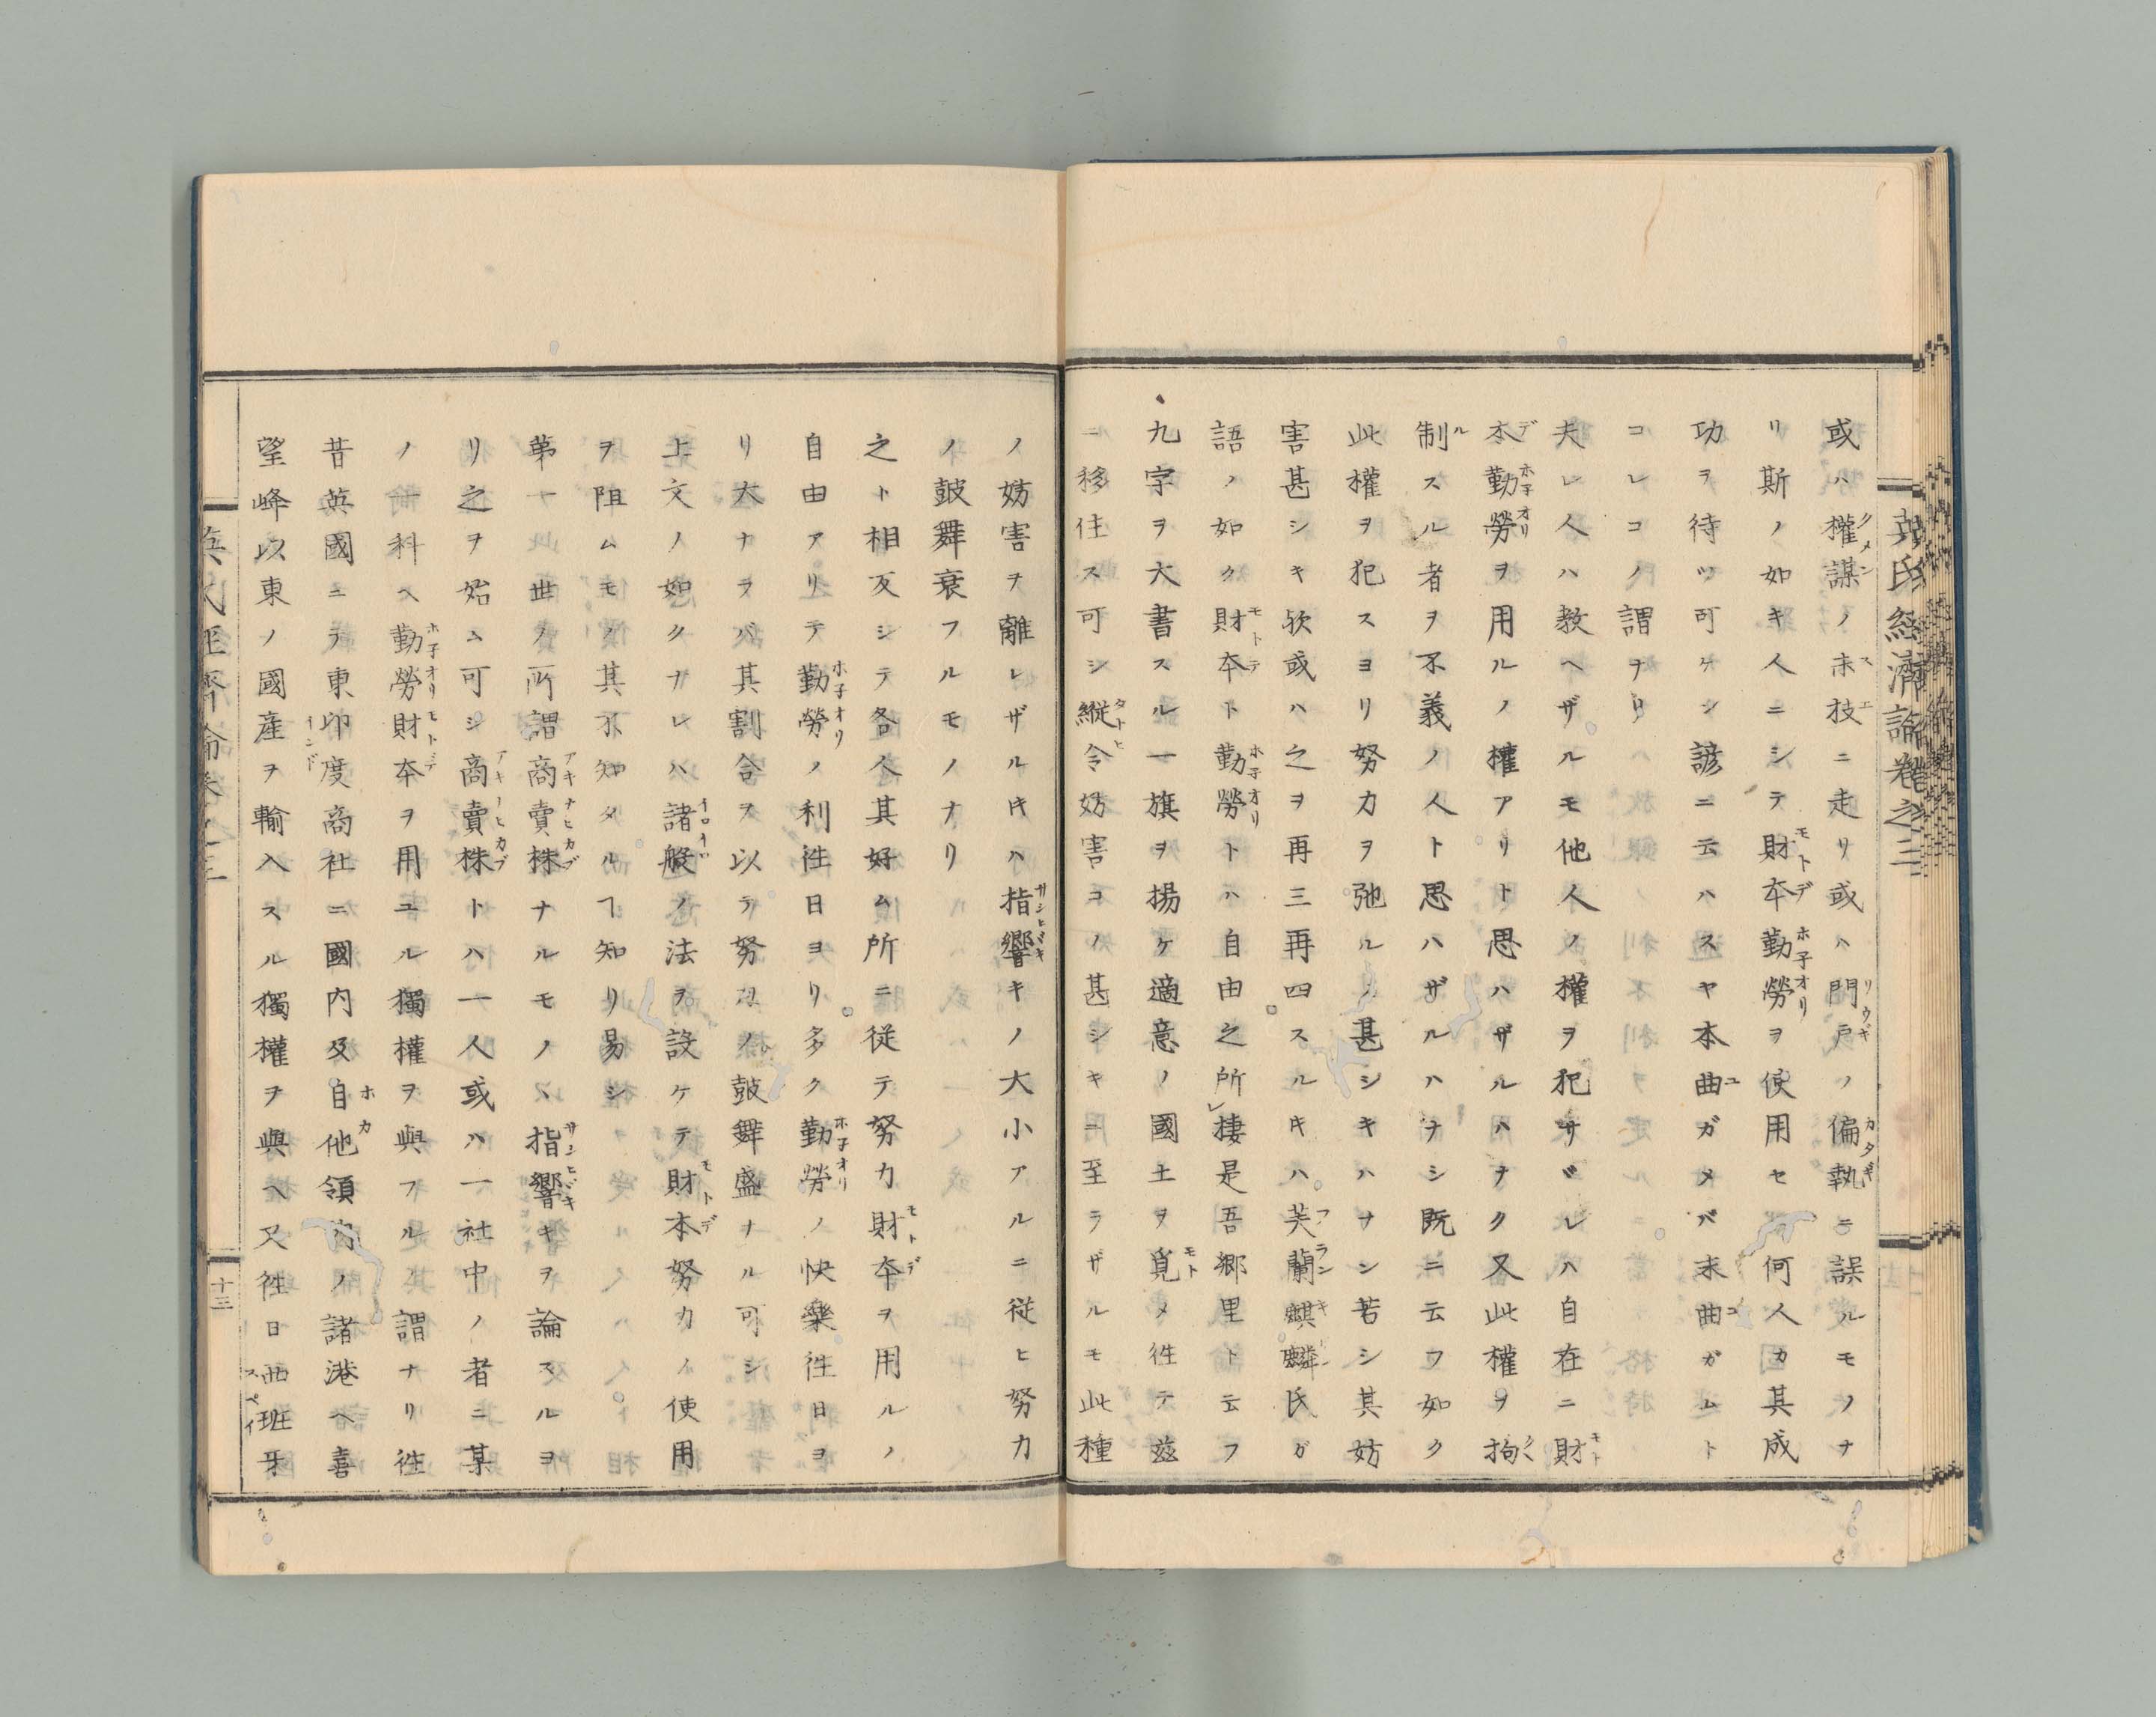 英氏經濟論卷之三
或ハ權謀ノ末技ニ走リ或ハ門戸ノ偏執ニ誤ルモノナ
リ斯ノ如キ人ニシテ財本勤勞ヲ使用セ何人カ其成
功ヲ待ツ可ケン諺ニ云ハスヤ本曲ガメバ末曲ガムト
コレコノ謂ナリ
夫レ人ハ教ヘザルモ他人ノ權ヲ犯サヾレハ自在ニ財
本勤勞ヲ用ルノ權アリト思ハザルハナク又此權ヲ拘
制スル者ヲ不義ノ人ト思ハザルハナシ既ニ云フ如ク
此權ヲ犯スヨリ努力ヲ弛ルノ甚シキハナシ若シ其妨
害甚シキ欤或ハ之ヲ再三再四スルキハ芙蘭麒麟氏ガ
語ノ如ク財本ト勤勞トハ自由之所レ棲是吾郷里ト云フ
九字ヲ大書スル一旗ヲ揚ケ適意ノ國土ヲ覓メ徃テ茲
ニ移住ス可シ縱令妨害コノ甚シキニ至ラザルモ此種
ノ妨害ヲ離レザルキハ指響キノ大小アルニ従ヒ努力
ノ皷舞衰フルモノナリ
之ト相反シテ各人其好ム所ニ従テ努力財本ヲ用ルノ
自由アリテ勤勞ノ利徃日ヨリ多ク勤勞ノ快樂徃日ヨ
リ大ナラバ其割合ヲ以テ努力ノ皷舞盛ナル可シ
上文ノ如クナレハ諸般ノ法ヲ設ケテ財本努力ノ使用
ヲ阻ムモノ其不知タルヿ知リ易シ
第一世ノ所謂商賣株ナルモノハ指響キヲ論スルヨ
リ之ヲ始ム可シ商賣株トハ一人或ハ一社中ノ者ニ某
ノ一科ヘ勤勞財本ヲ用ユル獨權ヲ與フルノ謂ナリ徃
昔英國ニテ東印度商社ニ國内及自他領内ノ諸港ヘ喜
望峰以東ノ國産ヲ輸入スル獨權ヲ與ヘ又徃日西班牙
十三